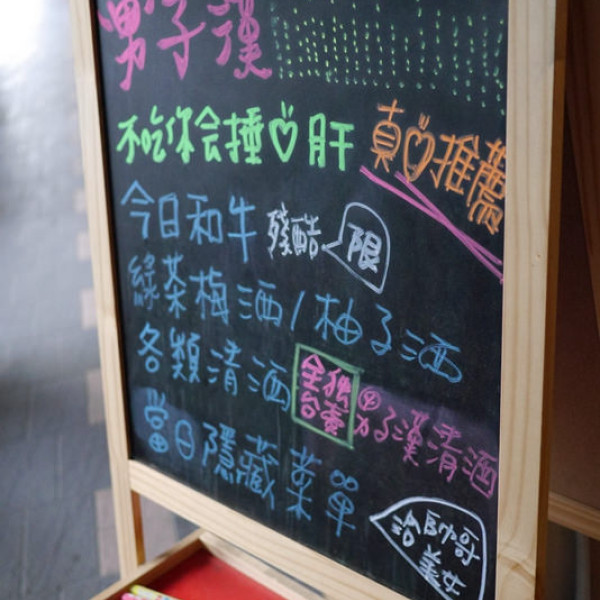 男子漢
不吃你会捶♡肝 真♡推薦
今日和牛 殘酷 限
綠茶梅酒/柚子酒
各類清酒 全台獨賣 男子漢清酒
當日隱藏菜單
洽帥哥美女